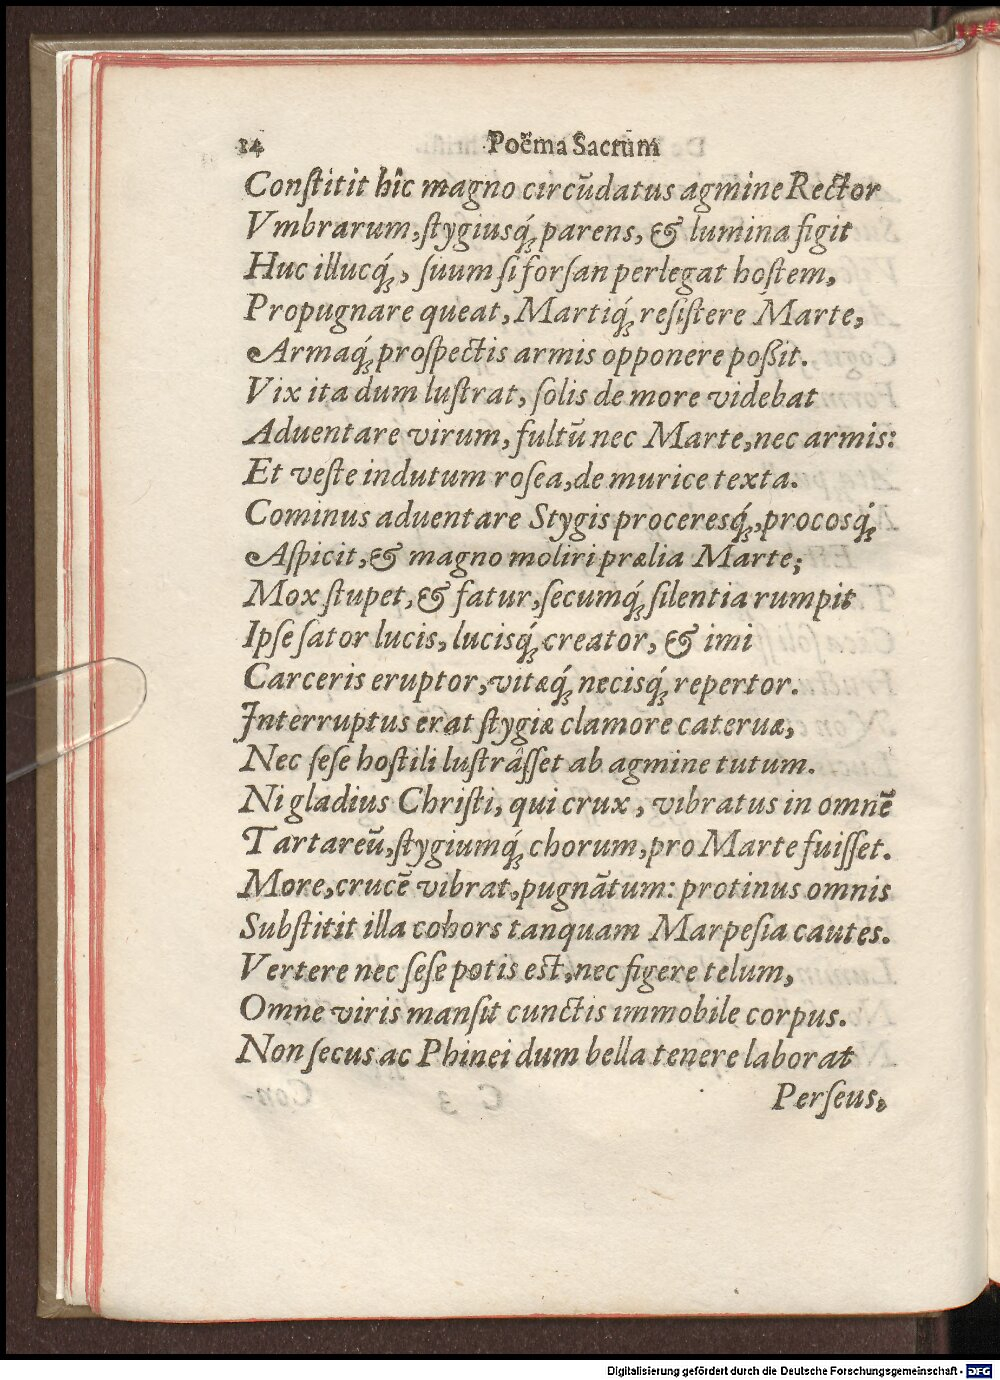 34 Poëma Sacrum
Conſtitit hîc magno circũdatus agmine Rector
Vmbrarum, ſtygiusq́; parens, & lumina figit
Huc illucq́;, ſuum ſi forſan perlegat hoſtem,
Propugnare queat, Martiq́; reſiſtere Marte,
Armaq́; proſpectis armis opponere poßit.
Vix ita dum luſtrat, ſolis de more videbat
Aduentare virum, fultũ nec Marte, nec armis:
Et veſte indutum roſea, de murice texta.
Cominus aduentare Stygis proceresq́;, procosq́;
Aſpicit, & magno moliri prælia Marte;
Mox ſtupet, & fatur, ſecumq́; ſilentia rumpit
Ipſe ſator lucis, lucisq́; creator, & imi
Carceris eruptor, vitæq́; necisq́; repertor.
Interruptus erat ſtygiæ clamore cateruæ,
Nec ſeſe hoſtili luſtrâſſet ab agmine tutum.
Ni gladius Chriſti, qui crux, vibratus in omnẽ
Tartareũ, ſtygiumq́; chorum, pro Marte fuiſſet.
More, crucẽ vibrat, pugnãtum: protinus omnis
Subſtitit illa cohors tanquam Marpeſia cautes.
Vertere nec ſeſe potis eſt, nec figere telum,
Omne viris manſit cunctis immobile corpus.
Non ſecus ac Phinei dum bella tenere laborat
Perſeus,
Digitalisierung gefördert durch die Deutsche Forschungsgemeinschaft - DFG